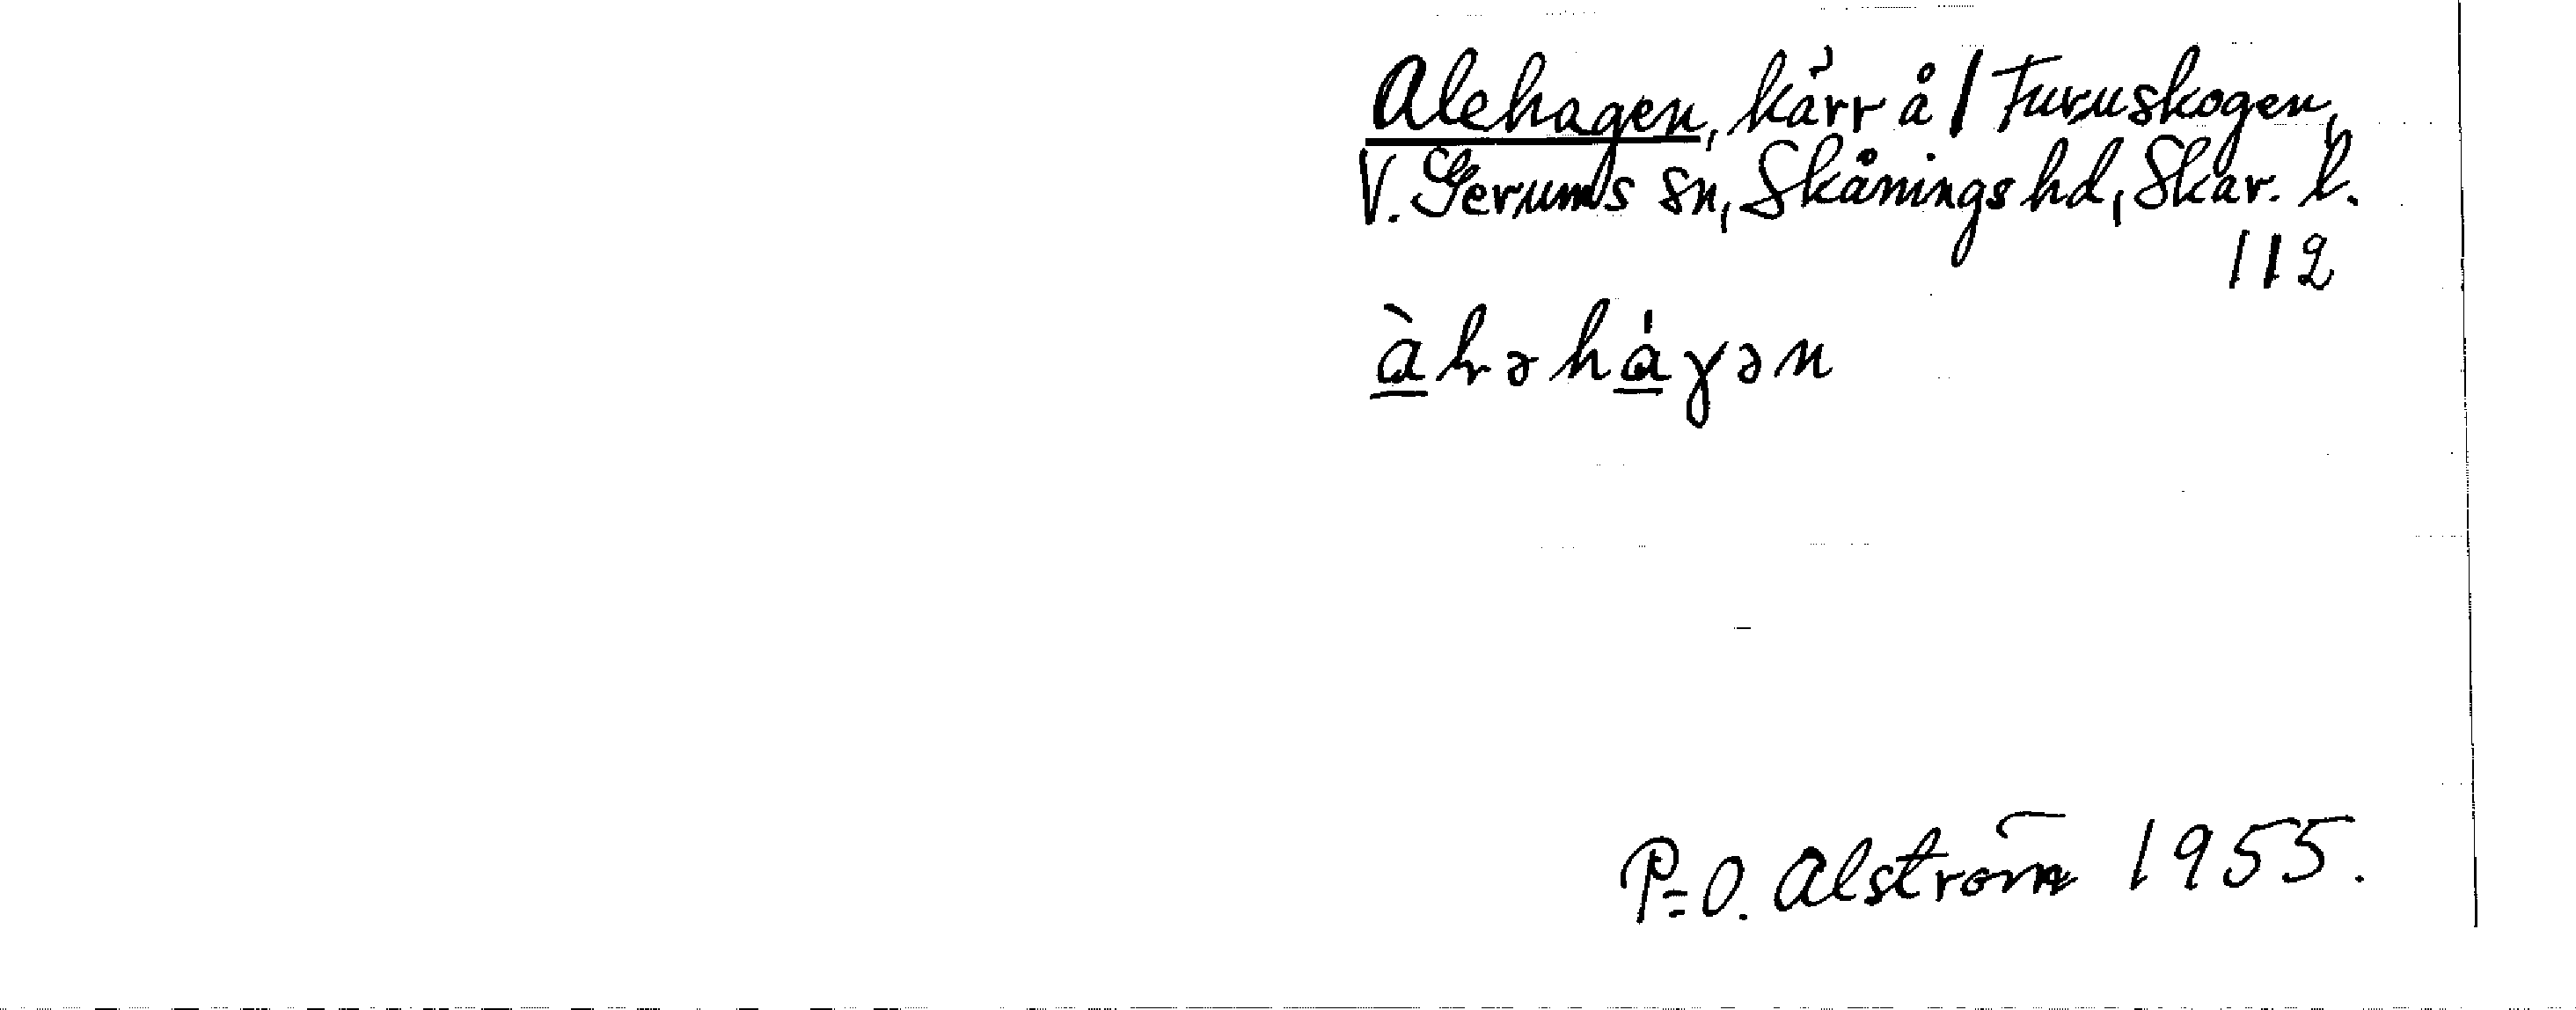 Alehagen, kärr å / Furuskogen,
V. Gerums sn, Skånings hd, Skar. l.
112
P=O. Alström 1955.